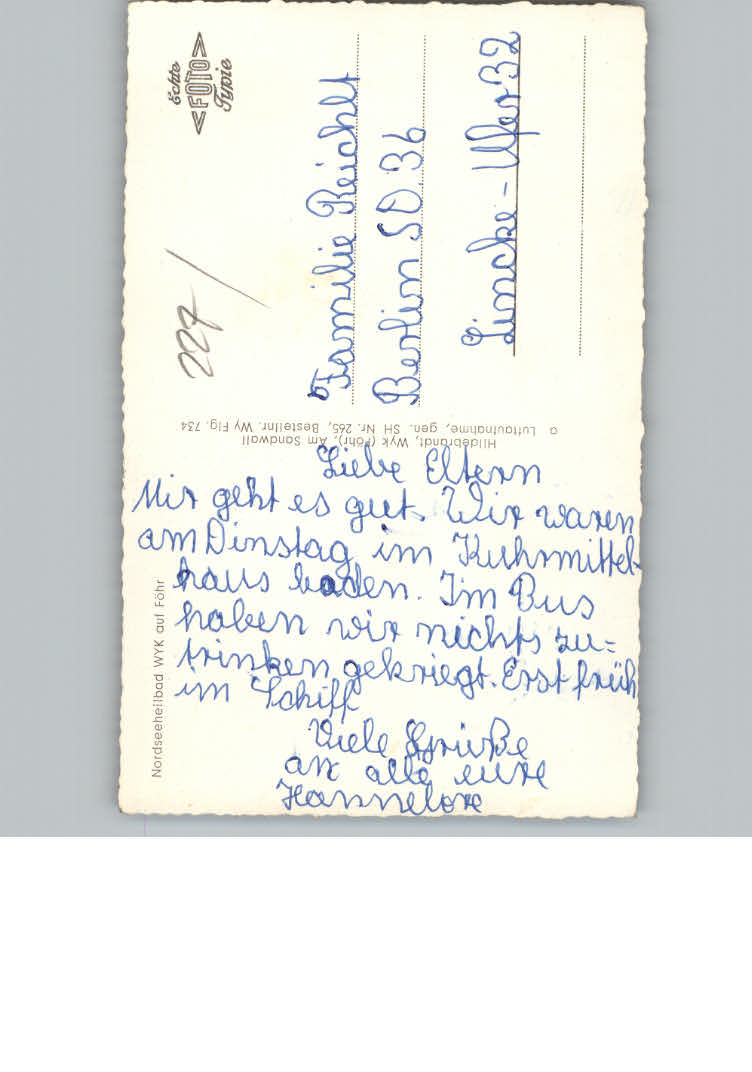 Echte
<FOTO>
Typie
227/
Familie Reichlt
Berlin SO. 36
Lincke-Ufer 32
Hildebrandt, Wyk (Föhr), Am Sandwall
a Luftaufnahme, gen. SH Nr. 265, Bestellnr. Wy Flg. 734
Nordseeheilbad WYK auf Föhr
Liebe Eltern
Mir geht es gut. Wir waren
am Dinstag im Kuhrmittel-
haus baden. Im Bus
haben wir nichts zu=
trinken gekriegt. Erst früh
im Schiff
Viele Grüße
an alle eure
Hannelore